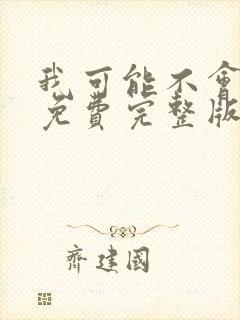 我可能不會
免費完整版
齊建國